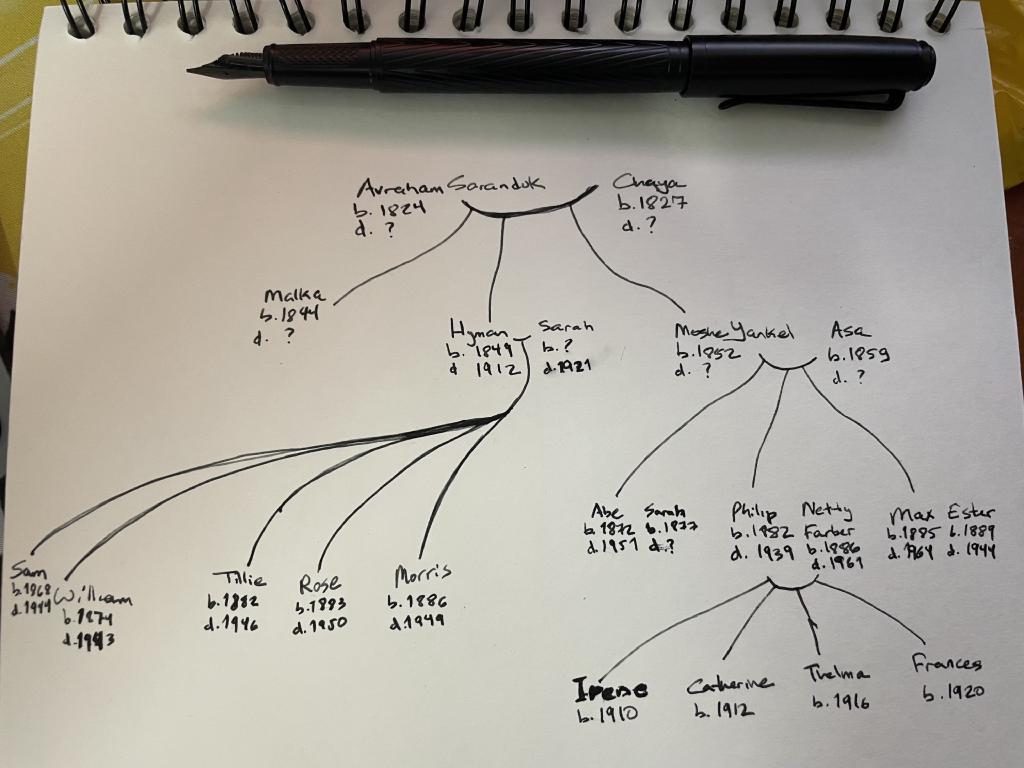 Avraham Sarandok
b. 1824
d. ?
Chaya
b. 1827
d. ?
Malka
b. 1844
d. ?
Hyman
b. 1849
d 1912
Sarah
b. ?
d. 1921
Moshe Yankel
b. 1852
d. ?
Asa
b. 1859
d. ?
Sam
b. 1868
d. 1944
William
b. 1874
d. 1943
Tillie
b. 1882
d. 1946
Rose
b. 1883
d. 1950
Morris
b. 1886
d. 1949
Abe
b. 1872
d. 1951
Sarah
b. 1877
d. ?
Philip
b. 1882
d. 1939
Netty
Farber
b. 1886
d. 1961
Max
b. 1885
d. 1964
Ester
b. 1889
d. 1944
Irene
b. 1910
Catherine
b. 1912
Thelma
b. 1916
Frances
b. 1920